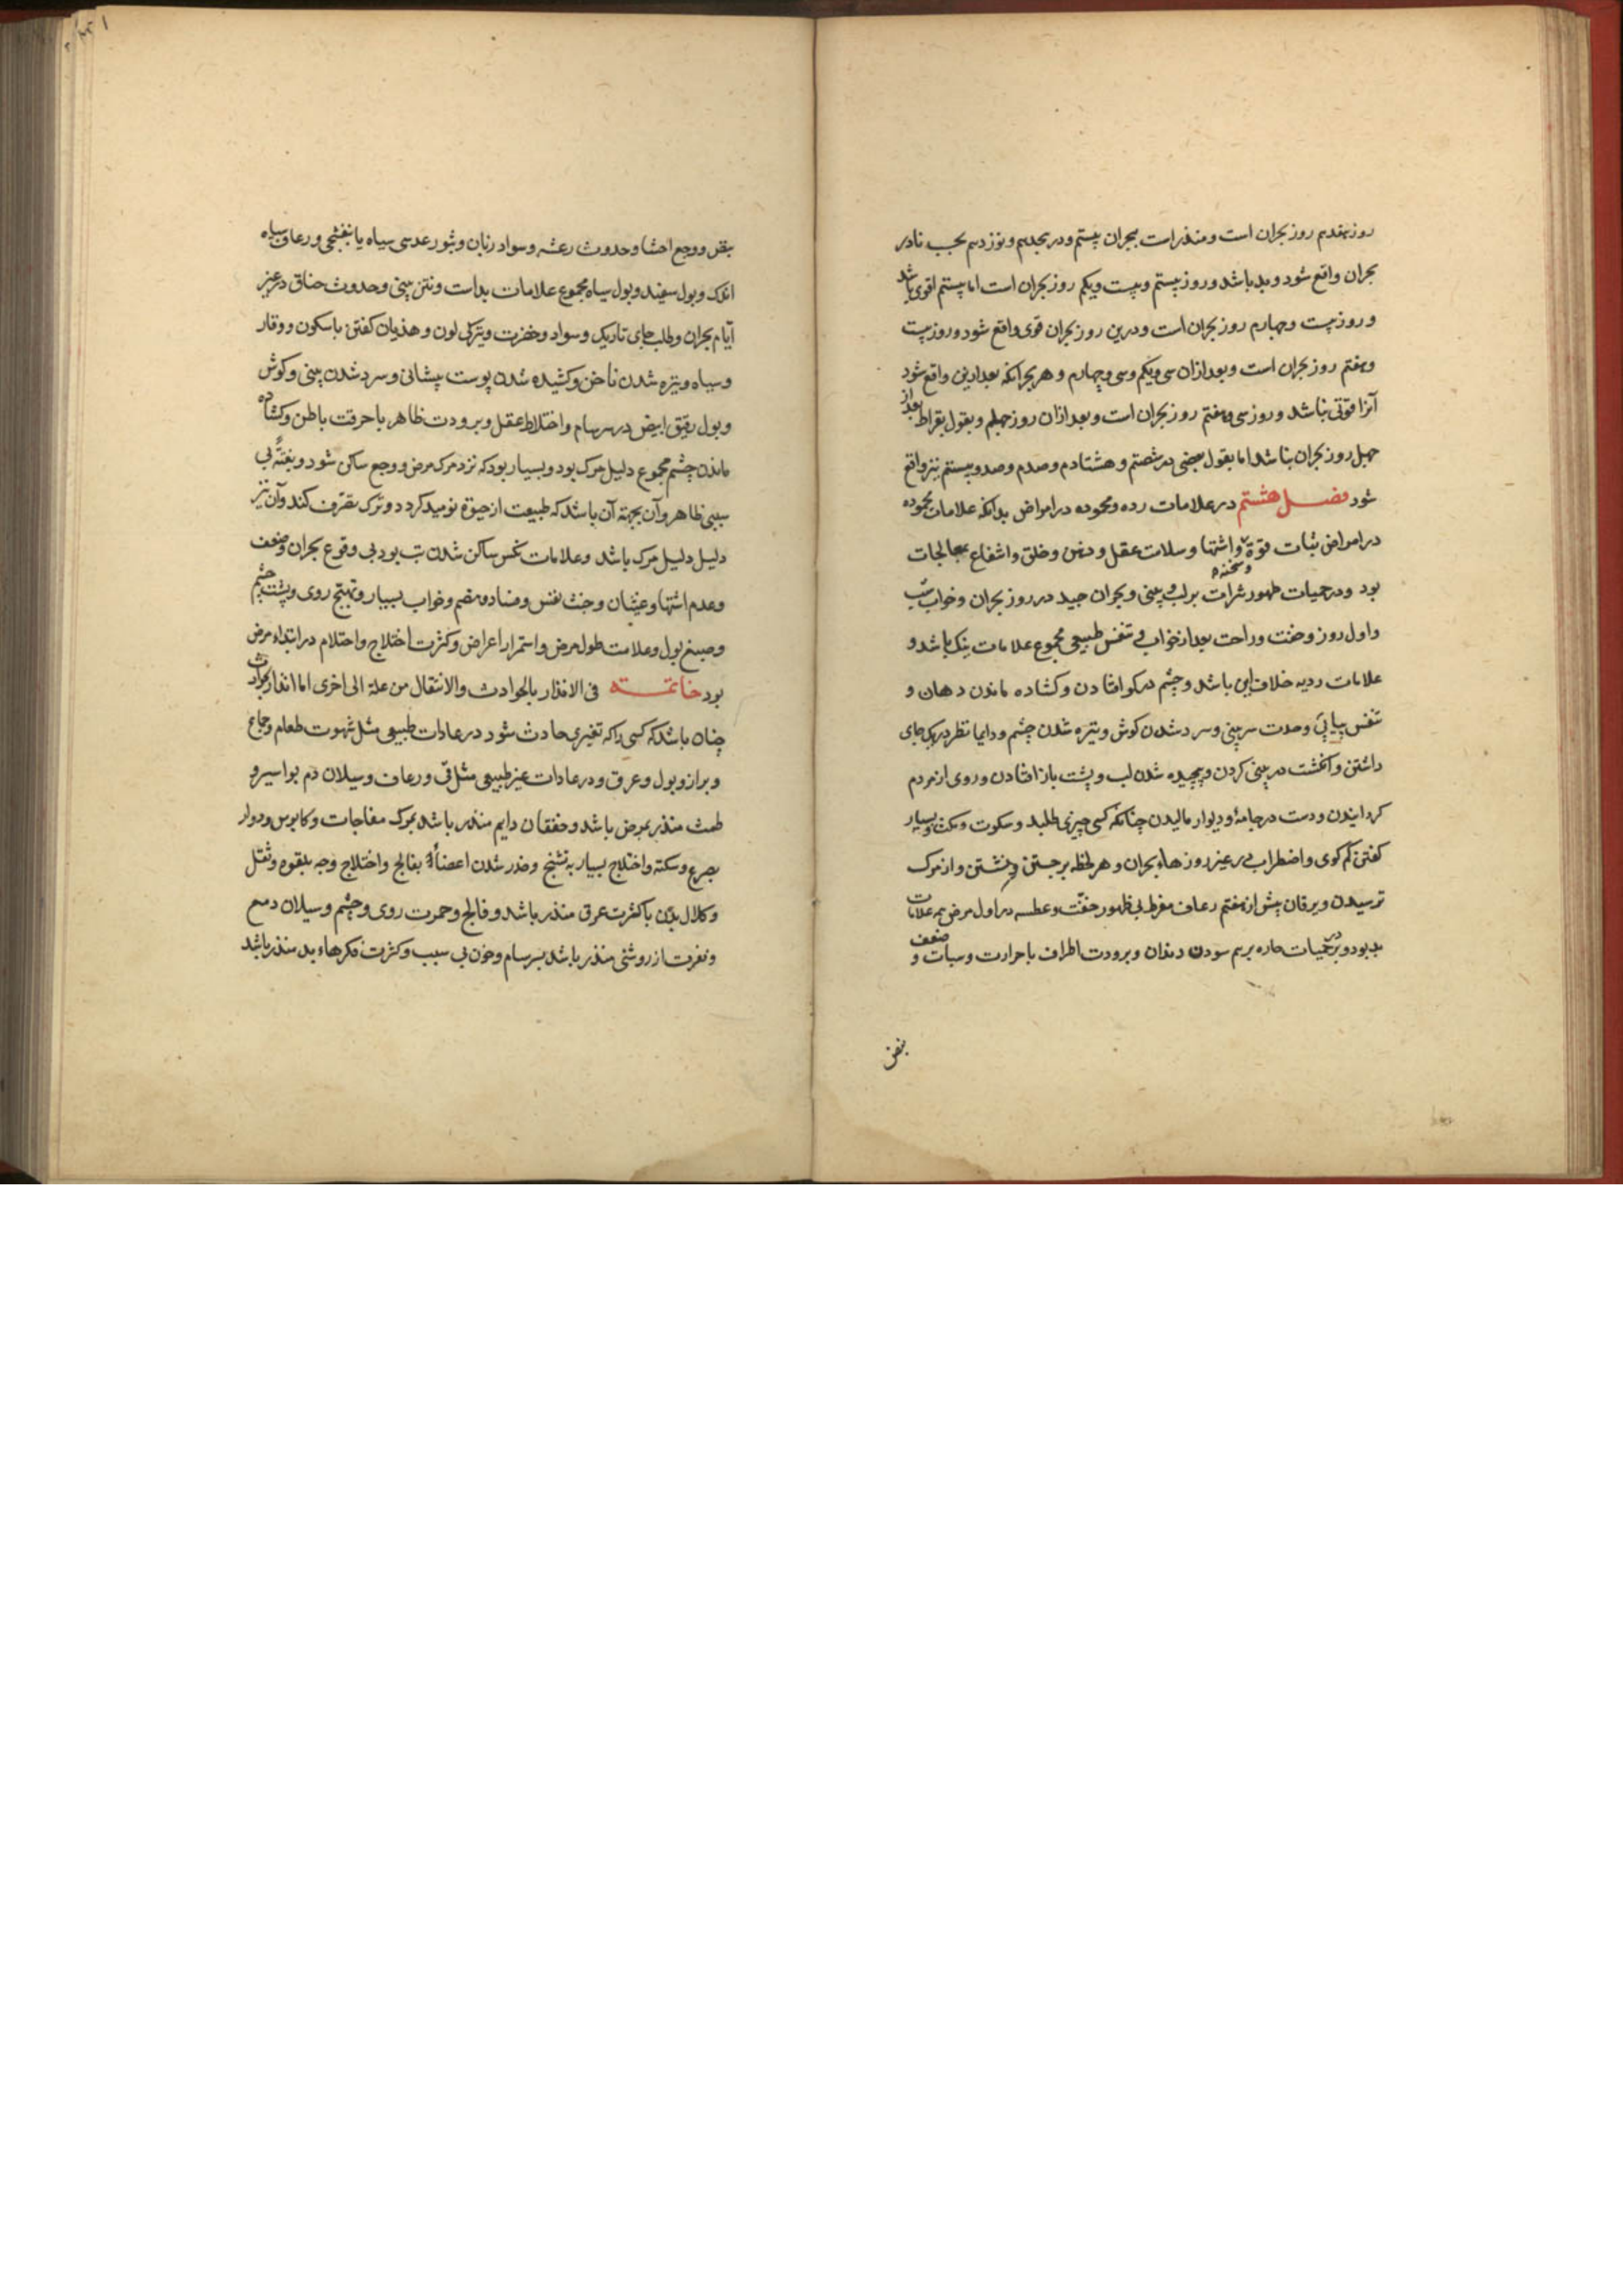 روز هفدهم روز بحران است و منذر است ببحران بیستم و در هجدهم و نوزدهم بحسب نادر
بحران واقع شود و بد باشد و روز بیستم و بیست ویکم روز بحران است اما بیستم اقوی باشد
و روز بیست و چهارم روز بحران است و درین روز بحران قوی واقع شود و روز بیست
و هفتم روز بحران است و بعد ازان سی ویکم و سی و چهارم و هر بحرانکه بعد ازین واقع شود
آنرا قوتی نباشد و روز سی و هفتم روز بحران است و بعد ازان روز چهلم و بقول بقراط بعد از
چهل روز بحران نباشد اما بقول بعضی در شصتم و هشتادم و صدم و صد و بیستم نیز واقع
شود فصل هشتم در علامات رده و محموده در امراض بدانکه علامات محموده
در امراض ثبات قوة و سخنه و اشتها و سلامت عقل و ذهن و خلق و انتفاع بمعالجات
بود و در حمیات ظهور بثرات بر لب و بینی و بحران جید در روز بحران و خواب شب
و اول روز و خفت و راحت بعد از خواب و تنفس طبیعی مجموع علامات نیک باشد و
علامات ردیه خلاف این باشد و چشم در کو افتادن و کشاده ماندن دهان و
تنفس پیاپی و حدت سر بینی و سرد شدن کوش و تیره شدن چشم و دایما نظر در یک جای
داشتن و انکشت در بینی کردن و پیچیده شدن لب و پشت باز افتادن و روی از مردم
کردانیدن و دست در جامه و دیوار مالیدن چنانکه کسی چیزی طلبد و سکوت و بسیار
کفتن کم کوی و اضطراب در غیر روزهاء بحران و هر لحظه برجستن و نشستن و از مرک
ترسیدن و یرقان پیش از هفتم رعاف مفرط بی ظهور خفت و عطسه در اول مرض همه علامات
بد بود و در حمیات حاره برهم سودن دندان و برودت اطراف با حرارت و سبات و ضعف
نبض
نبض و وجع احشا و حدوث رعشه و سواد زبان و بثور عدسی سیاه یا بنفشجی و رعاف سیاه
اندک و بول سفید و بول سیاه مجموع علامات بد است و نتن بینی و حدوث خناق در غیر
ایّام بحران و طلب جای تاریک و سواد و خضرت و تیرکی لون و هذیان کفتن با سکون و وقار
و سیاه و تیره شدن ناخن و کشیده شدن پوست پیشانی و سرد شدن بینی و کوش
و بول رقیق ابیض در سرسام و اختلاط عقل و برودت ظاهر با حرقت باطن و کشاده
ماندن چشم مجموع دلیل مرک بود و بسیار بود که نزد مرک مرض و وجع ساکن شود و بغتةً بی
سببی ظاهر و آن بجهة آن باشد که طبیعت از حیوة نومید کردد و ترک تصرف کند و آن نیز
دلیل دلیل مرک باشد و علامات نکس ساکن شدن تب بود بی وقوع بحران و ضعف
و عدم اشتها و غثیان و خبث نفس و فساد هضم و خواب بسیار و تهبج روی و پشت چشم
و صبغ بول و علامت طول مرض و استمرار اعراض و کثرت اختلاج و احتلام در ابتداء مرض
بود خاتمه فی الانذار بالحوادث و الانتقال من علة الی اخری اما انذار بحوادث
چنان باشد که کسی را که تغیری حادث شود در عادات طبیعی مثل شهوت طعام و جماع
و براز و بول و عرق و در عادات غیر طبیعی مثل قی و رعاف و سیلان دم بواسیر و
طمث منذر بمرض باشد و خفقان دایم منذر باشد بمرک مفاجات و کابوس و دوار
بصرع و سکته و اختلاج بسیار به تشنج و خدر شدن اعضا بفالج و اختلاج وجه بلقوه و ثقل
و کلال بدن با کثرت عرق منذر باشد و فالج و حمرت روی و چشم و سیلان دمع
و نفرت از روشنی منذر باشد بسرسام و خوف بی سبب و کثرت فکرهاء بد منذر باشد